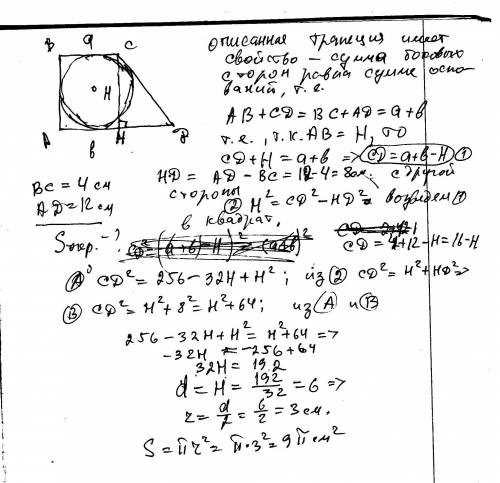 B a C
H
A b H D
BC = 4 см
AD = 12 см
Sокр. - ?
описанная трапеция имеет
свойство - сумма боковых
сторон равна сумме осно-
ваний, т.е.
AB + CD = BC + AD = a + b
т.е., т.к. AB = H, то
CD + H = a + b => CD = a + b - H ①
HD = AD - BC = 12 - 4 = 8 см. с другой
стороны
② H² = CD² - HD² возведем ①
в квадрат.
CD = 4 + 12 - H = 16 - H
Ⓐ CD² = 256 - 32H + H²; из ② CD² = H² + HD² =>
Ⓑ CD² = H² + 8² = H² + 64; из Ⓐ и Ⓑ
256 - 32H + H² = H² + 64 =>
-32H = -256 + 64
32H = 192
d = H = 192/32 = 6 =>
r = d/2 = 6/2 = 3 см.
S = πr² = π·3² = 9π см²